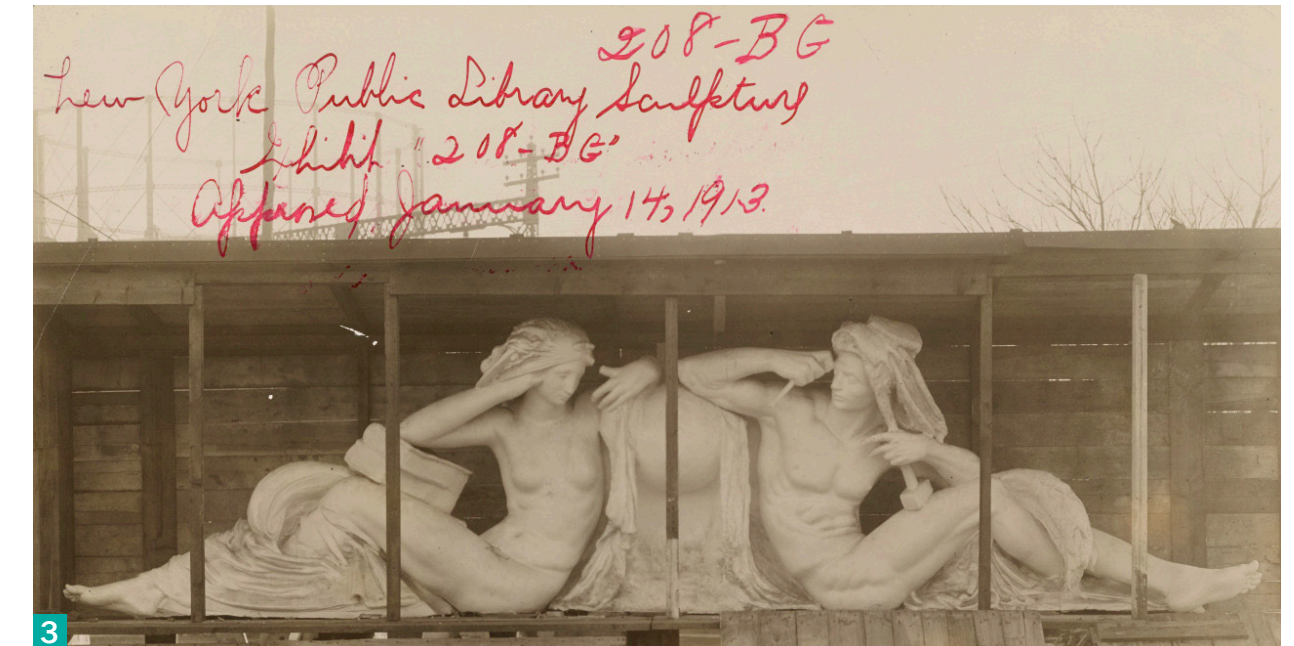 208-BG
New York Public Library Sculpture
Exhibit "208-BG"
Approved January 14, 1913.
3